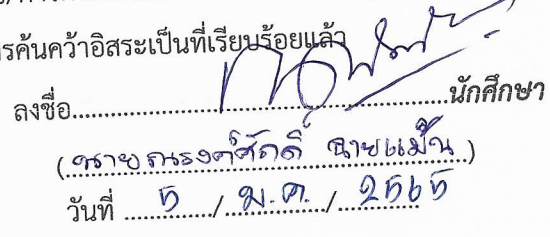 รค้นคว้าอิสระเป็นที่เรียบร้อยแล้ว
ลงชื่อ................................................นักศึกษา
(นายณรงค์ศักดิ์ ฉายแม้น)
วันที่ 5 / ม.ค. / 2565